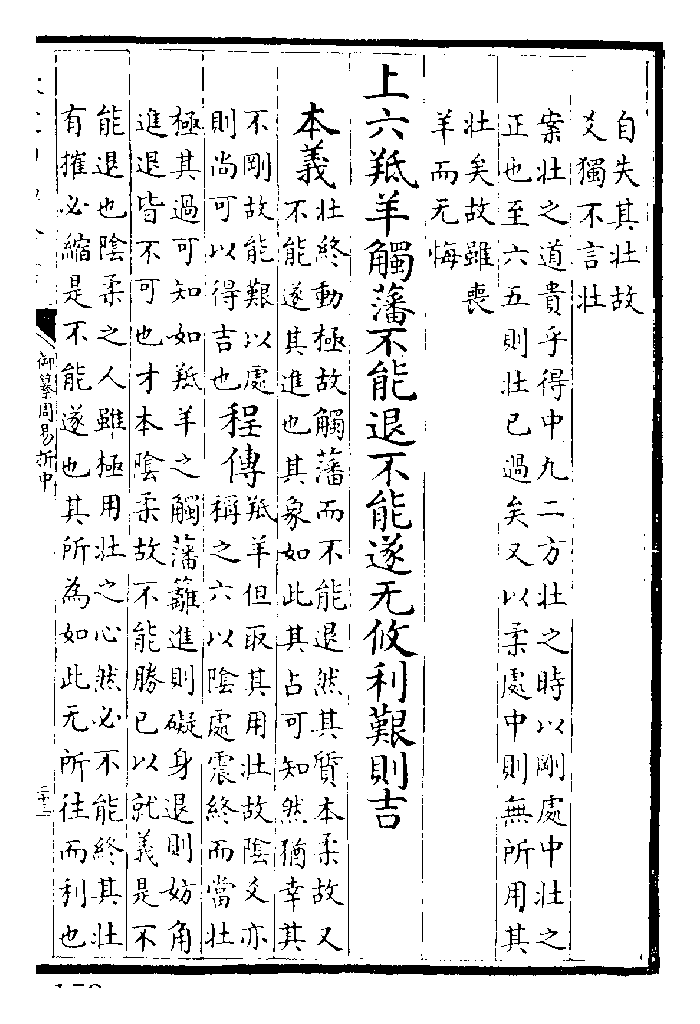 自失其壯故
爻獨不言壯
案壯之道貴乎得中九二方壯之時以剛處中壯之
正也至六五則壯已過矣又以柔處中則無所用其
壯矣故雖喪
羊而无悔
上六羝羊觸藩不能退不能遂无攸利艱則吉
本義
壯終動極故觸藩而不能退然其質本柔故又
不能遂其進也其象如此其占可知然猶幸其
不剛故能艱以處
則尚可以得吉也
程傳
羝羊但取其用壯故陰爻亦
稱之六以陰處震終而當壯
極其過可知如羝羊之觸藩籬進則礙身退則妨角
進退皆不可也才本陰柔故不能勝已以就義是不
能退也陰柔之人雖極用壯之心然必不能終其壯
有摧必縮是不能遂也其所為如此无所往而利也
御纂周易折中